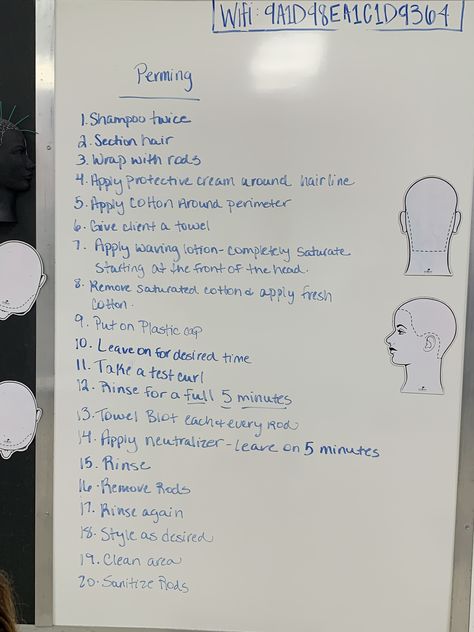 Wifi: 9A1D48EA1C1D9364
Perming
1. Shampoo twice
2. Section hair
3. Wrap with rods
4. Apply Protective cream around hairline
5. Apply Cotton Around perimeter
6. Give client a towel
7. Apply waving lotion - completely Saturate
Starting at the front of the head.
8. Remove saturated cotton & apply fresh
cotton.
9. Put on Plastic cap
10. Leave on for desired time
11. Take a test curl
12. Rinse for a full 5 minutes
13. Towel Blot each & every Rod
14. Apply neutralizer - leave on 5 minutes
15. Rinse
16. Remove Rods
17. Rinse again
18. Style as desired
19. Clean area
20. Sanitize Rods